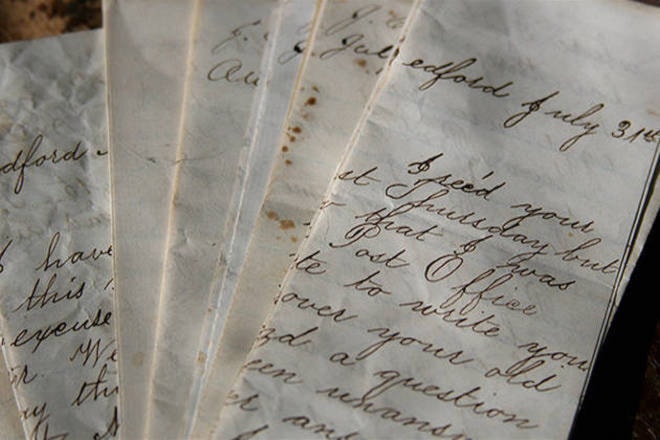 dford
I have
this
excuse
r. We
ay th
J.
Au
J. J
July
edford July 31st
I rec'd your
st Thursday but
that I was
Post Office
te to write you
over your old
d a question
een unansw
er an